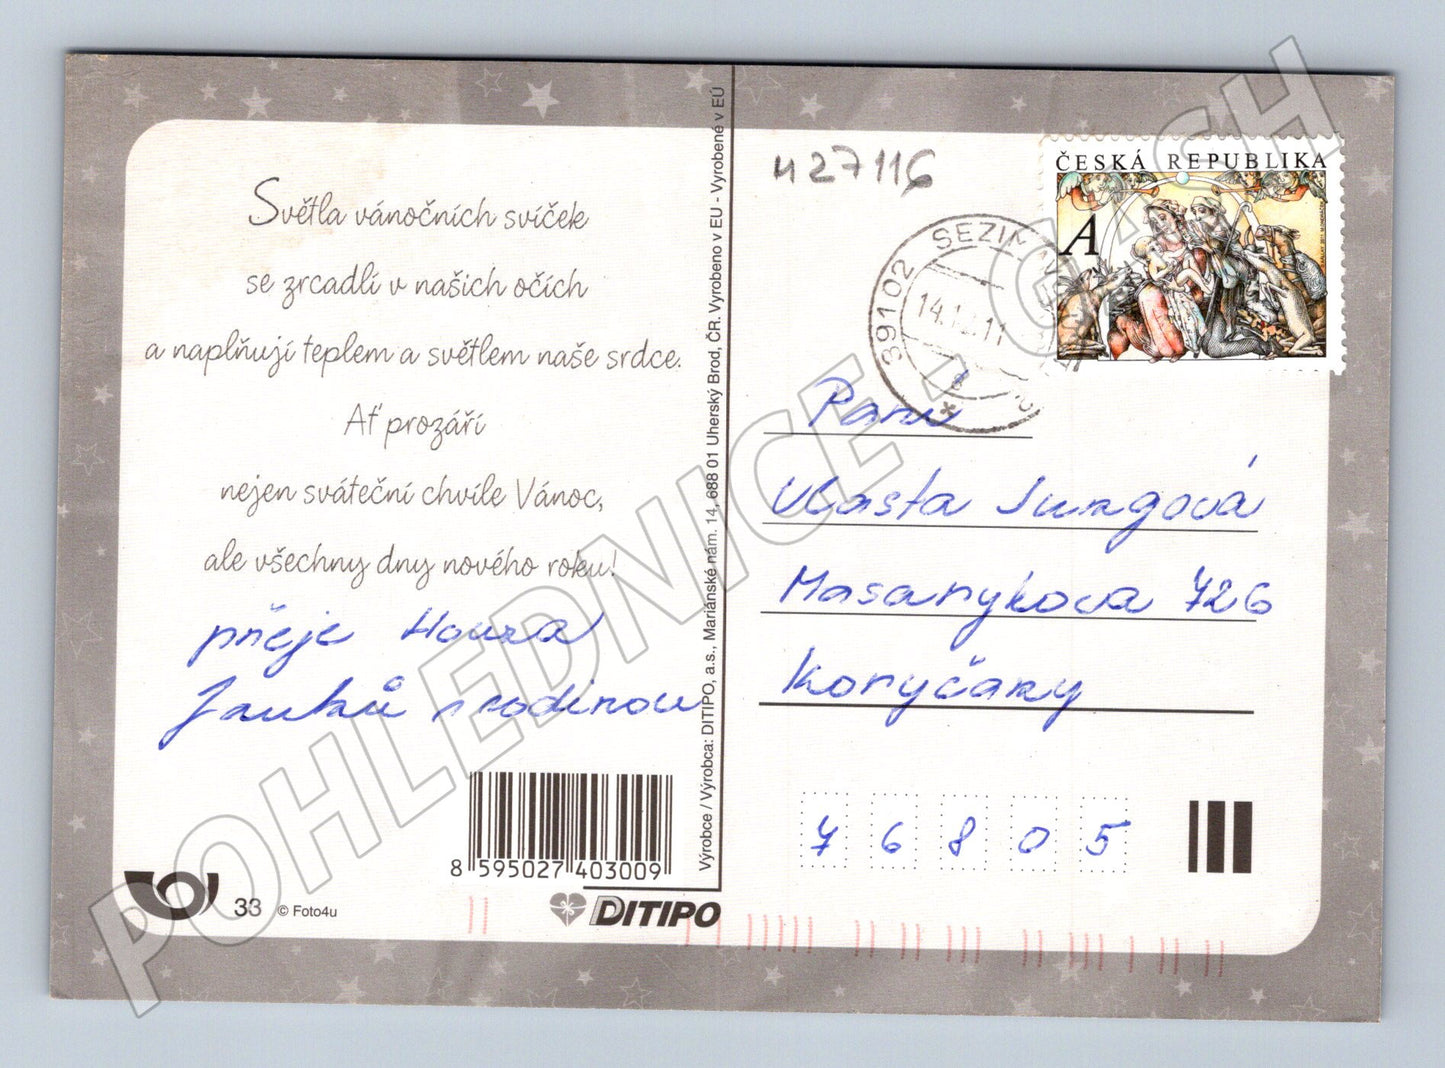 Světla vánočních svíček
se zrcadlí v našich očích
a naplňují teplem a světlem naše srdce.
Ať prozáří
nejen sváteční chvíle Vánoc,
ale všechny dny nového roku!
přeje Honza
Janků s rodinou
8 595027 403009
33 © Foto4u
DITIPO
Výrobce / Výrobca: DITIPO, a.s., Mariánské nám. 14, 688 01 Uherský Brod, ČR. Vyrobeno v EU - Vyrobené v EÚ
n27116
ČESKÁ REPUBLIKA
A
39102 SEZIM
14.12.11
Paní
Vlasta Jurgová
Masarykova 726
Koryčany
7 6 8 0 5
POHLEDNICE - CASH